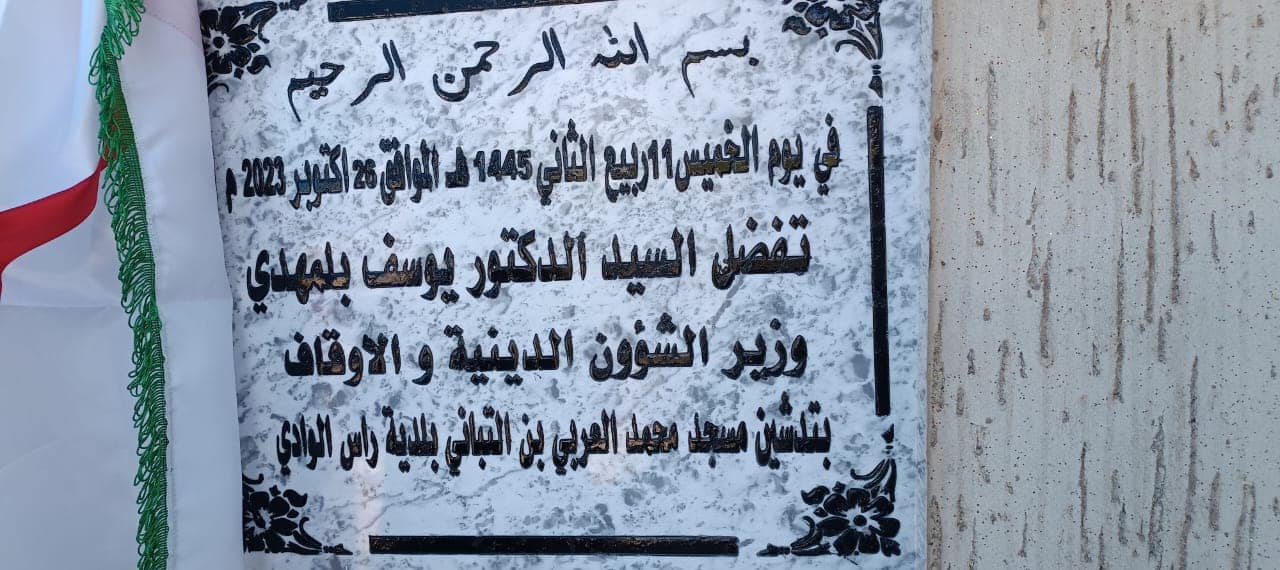 بسم الله الرحمن الرحيم
في يوم الخميس 11 ربيع الثاني 1445 هـ الموافق 26 اكتوبر 2023 م
تفضل السيد الدكتور يوسف بلمهدي
وزير الشؤون الدينية و الاوقاف
بتدشين مسجد محمد العربي بن التباني بلدية راس الوادي